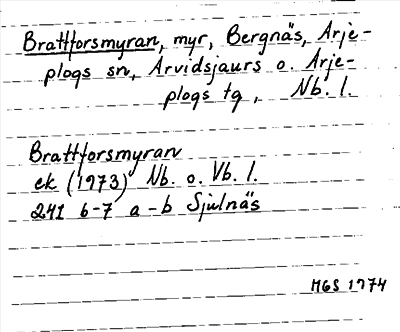 Brattforsmyran, myr, Bergnäs, Arje-
plogs sn, Arvidsjaurs o. Arje-
plogs tg, Nb. l.
Brattforsmyran
ek (1973) Nb. o. Vb. l.
241 6-7 a-b Sjulnäs
MGS 1974